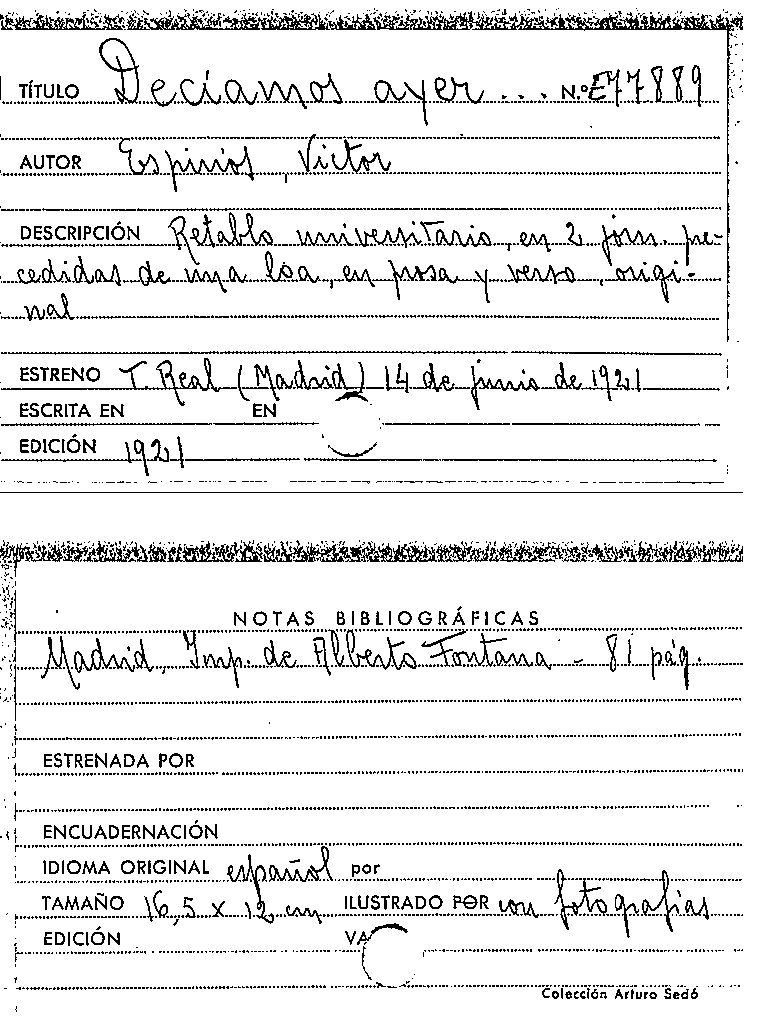 TÍTULO Decíamos ayer... N.º E77889
AUTOR Espinós, Victor
DESCRIPCIÓN Retablo universitario, en 2 jorn. pre-
cedidas de una loa, en prosa y verso, origi-
nal
ESTRENO T. Real (Madrid) 14 de junio de 1921
ESCRITA EN EN
EDICIÓN 1921
NOTAS BIBLIOGRÁFICAS
Madrid, Imp. de Alberto Fontana - 81 pág.
ESTRENADA POR
ENCUADERNACIÓN
IDIOMA ORIGINAL español por
TAMAÑO 16,5 x 12 cm ILUSTRADO POR con fotografias
EDICIÓN VA
Colección Arturo Sedó